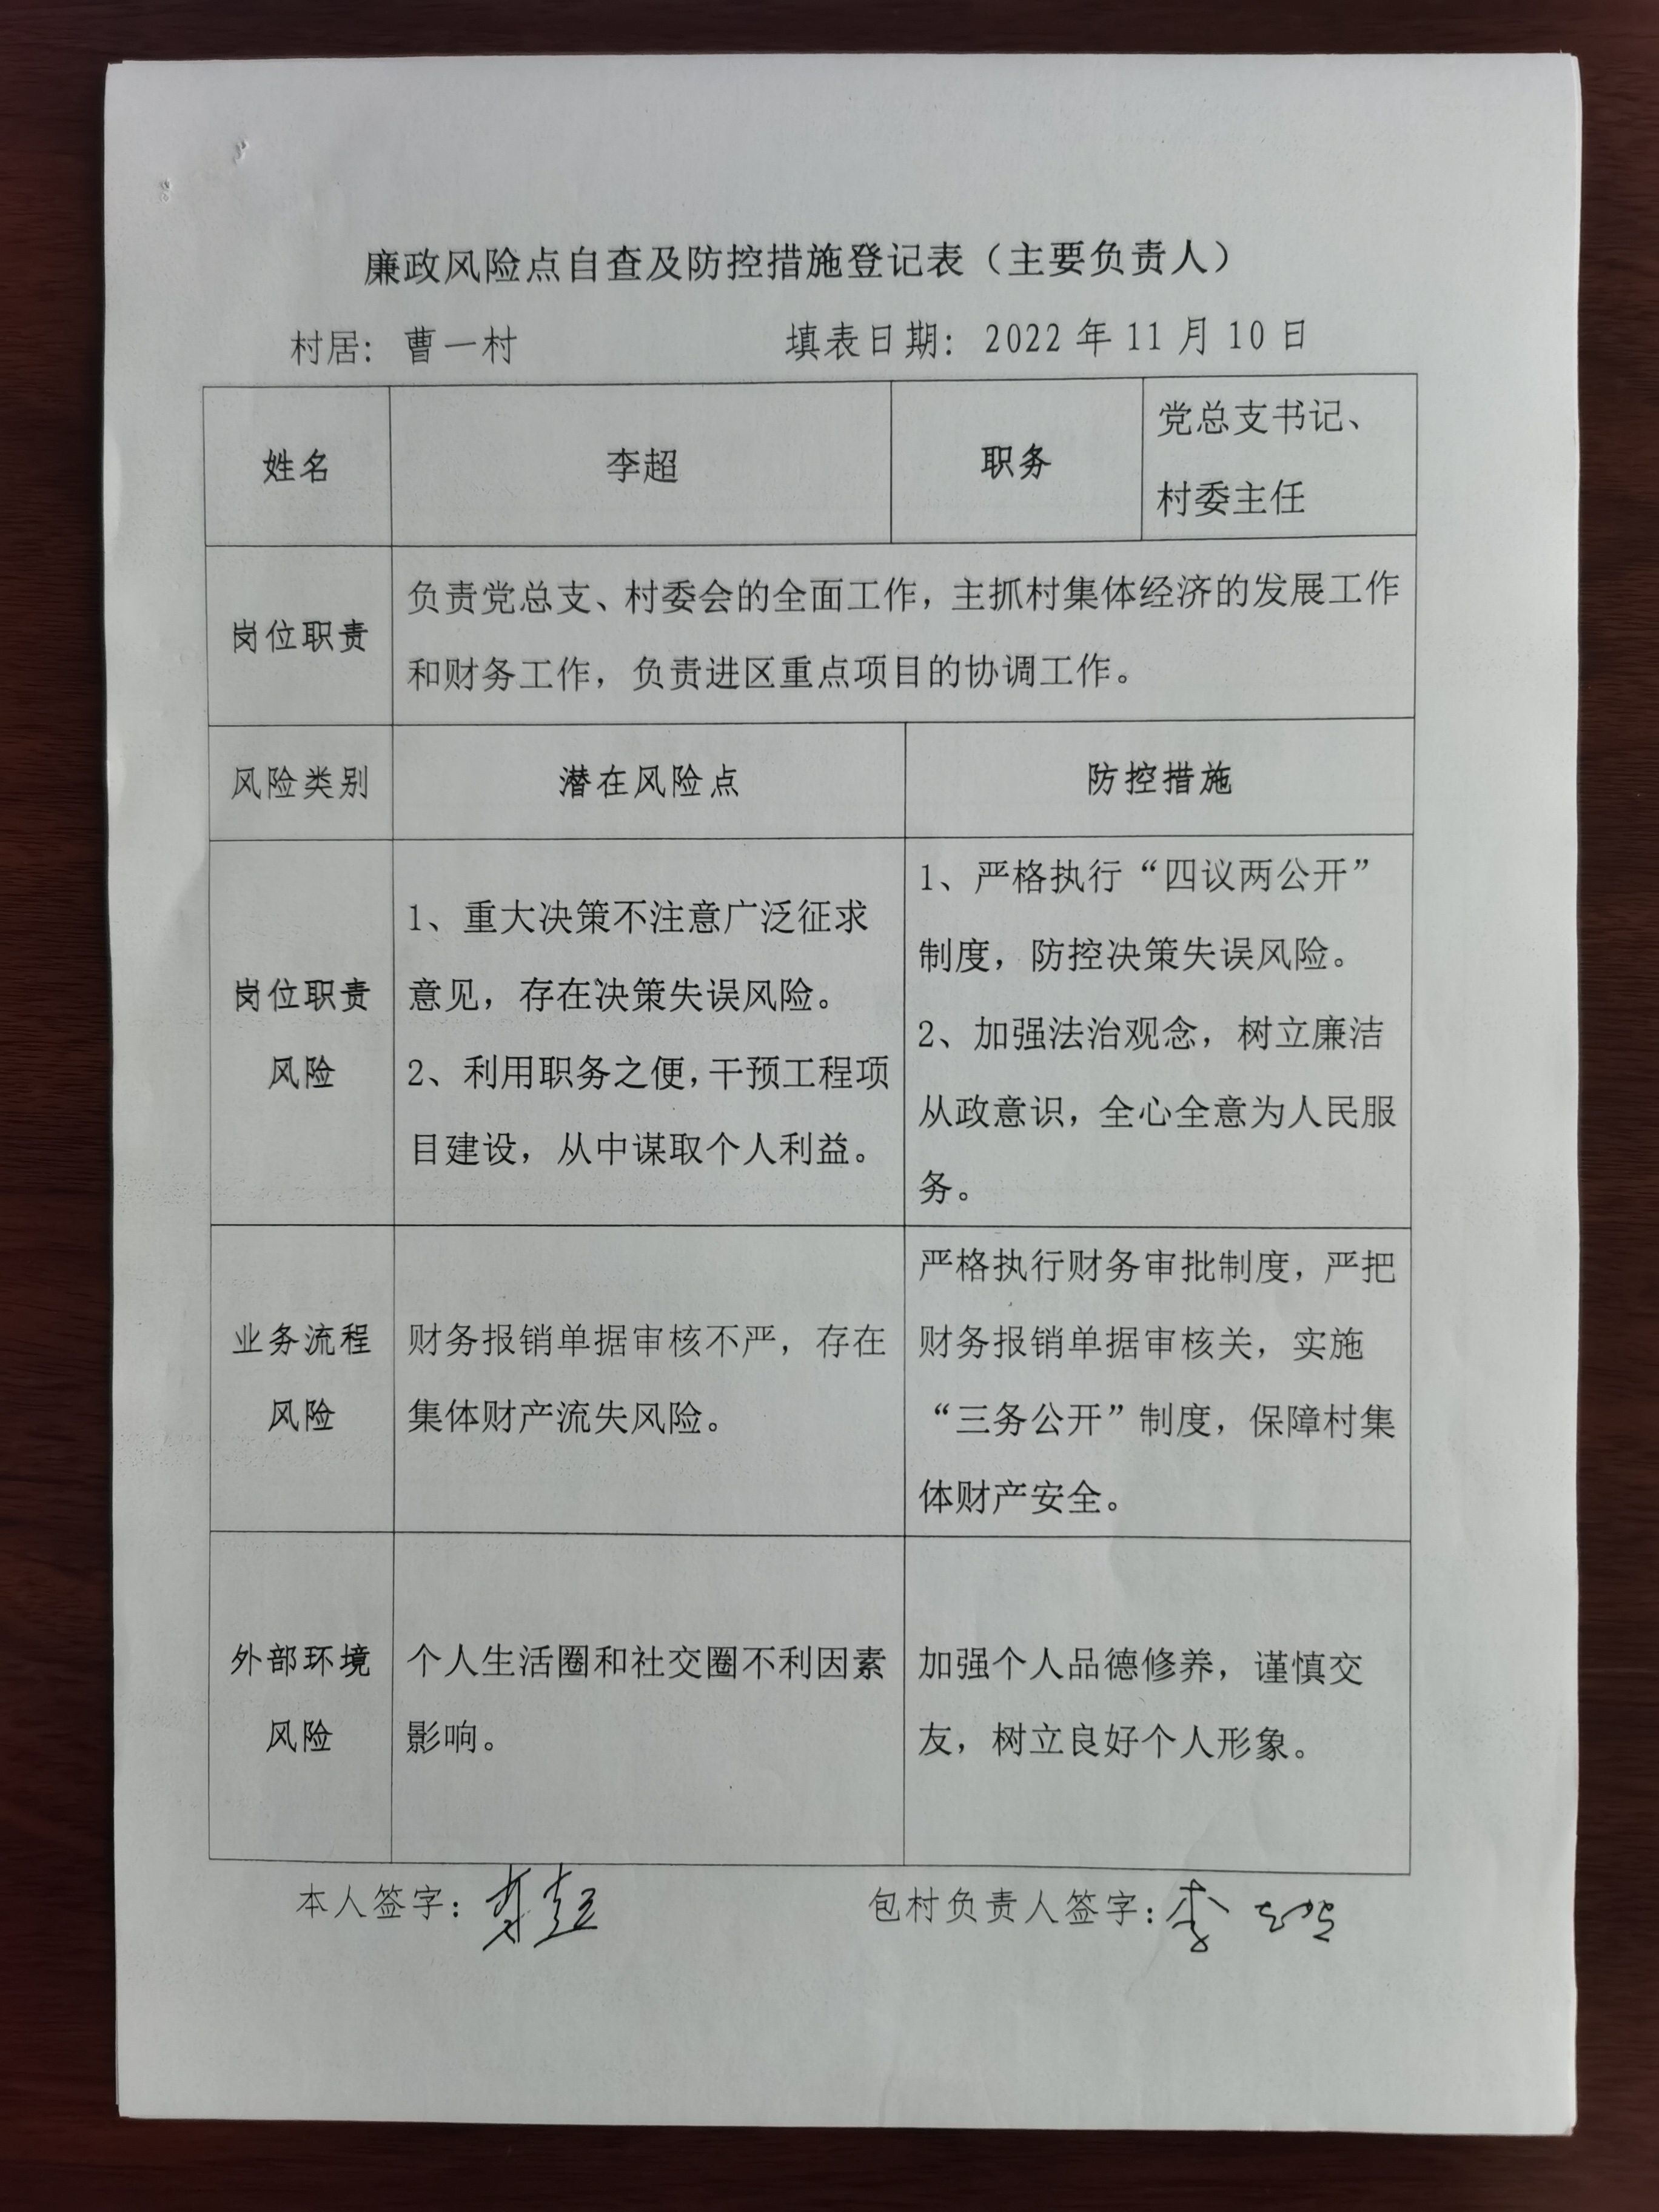 廉政风险点自查及防控措施登记表（主要负责人）
村居：曹一村 填表日期：2022年11月10日
姓名 李超 职务 党总支书记、
村委主任
岗位职责
负责党总支、村委会的全面工作，主抓村集体经济的发展工作
和财务工作，负责进区重点项目的协调工作。
风险类别 潜在风险点 防控措施
岗位职责
风险
1、重大决策不注意广泛征求
意见，存在决策失误风险。
2、利用职务之便，干预工程项
目建设，从中谋取个人利益。
1、严格执行“四议两公开”
制度，防控决策失误风险。
2、加强法治观念，树立廉洁
从政意识，全心全意为人民服
务。
业务流程
风险
财务报销单据审核不严，存在
集体财产流失风险。
严格执行财务审批制度，严把
财务报销单据审核关，实施
“三务公开”制度，保障村集
体财产安全。
外部环境
风险
个人生活圈和社交圈不利因素
影响。
加强个人品德修养，谨慎交
友，树立良好个人形象。
本人签字：李超 包村负责人签字：李